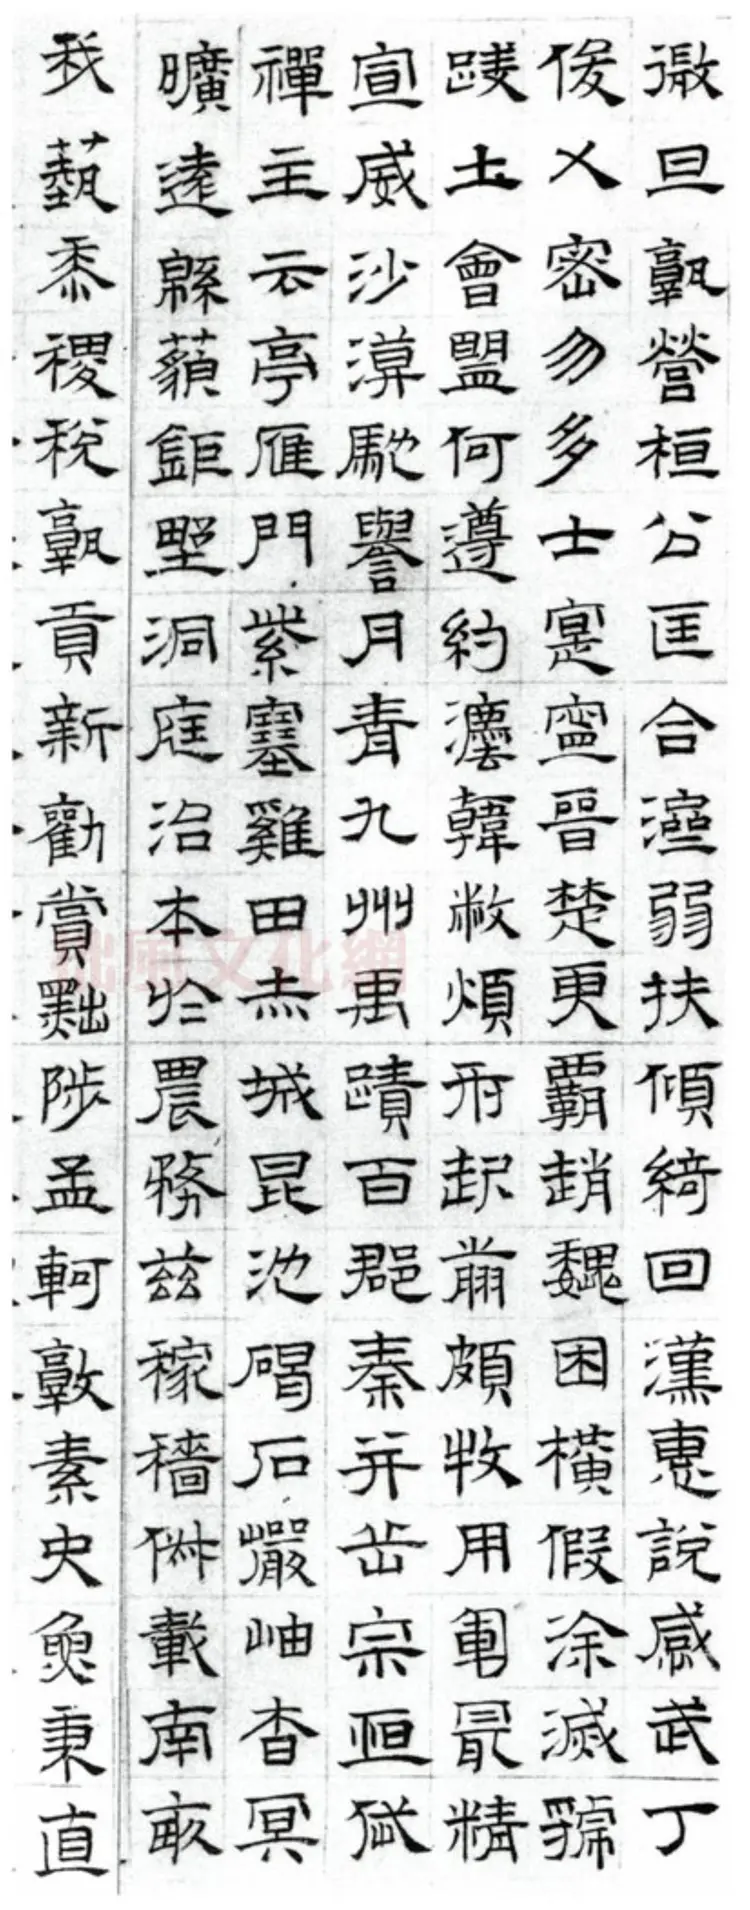 微旦孰營桓公匡合濟弱扶傾綺回漢惠說感武丁
俊乂密勿多士寔寧晉楚更霸趙魏困橫假涂滅虢
踐土會盟何遵約灋韓敝煩刑起翦頗牧用軍最精
宣威沙漠馳譽丹青九州禹蹟百郡秦并岳宗恒岱
禪主云亭雁門紫塞雞田赤城昆池碣石巖岫杳冥
曠遠緜藐鉅野洞庭治本於農務茲稼穡俶載南畝
我藝黍稷稅孰貢新勸賞黜陟孟軻敦素史魚秉直
風文化網